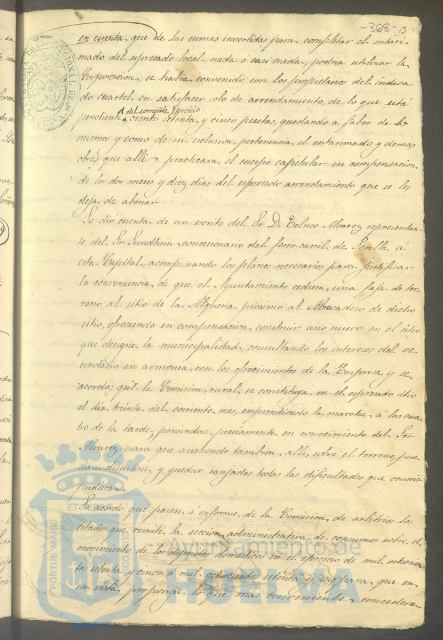 -368-
en cuenta, que de las sumas invertidas para completar el entari-
mado del espresado local, nada o casi nada, podria utilizar la
Corporacion, se había convenido con los propietarios del indica-
do cuartel, en satisfacer solo de arrendamiento, de lo que esta
pendiente ciento setenta, y cinco pesetas, quedando a favor de los
mismos y como de su esclusiva, pertenencia, el entarimado y demas
obras que alli practicara, el cuerpo capitular en compensacion
de los dos meses y diez dias del espresado arrendamiento que se les
deja de abonar.
Se dio cuenta de un escrito del Sr. D. Telmo Alvarez representan-
te del Sr. Sundhein, concesionario del ferro-carril de Sevilla á
esta Capital, acompañando los planos necesarios para justificar
la conveniencia, de que el Ayuntamiento cediera, una faja de te-
rreno al sitio de la proximo al de dicho
sitio, ofreciendo en compensacion, construir uno nuevo en el sitio
que designe, la municipalidad, consultando los intereses del ve-
cindario en armonia con los ofrecimientos de la Empresa y se
acordo: que la Comision rural, se constituya en el espresado sitio
el dia, treinta del corriente mes, emprendiendo la marcha, a las cua-
tro de la tarde, poniendose, previamente en conocimiento del Sr.
Alvarez para que asistiendo tambien, alli, sobre el terreno, pue-
dan discutirse, y quedar zanjadas todas las dificultades que
pudieran.
Se acordó que pasase a informe de la Comision, de arbitrios los
estados que remite la seccion administrativa de consumos sobre el
movimiento de los depositos domesticos en el ejercicio de mil ochocien-
tos setenta y cinco a mil ochocientos setenta y seis para, que en
su vista proponga lo que mas conveniente considere
Ayuntamiento de
HUELVA
PORTUS MARIS